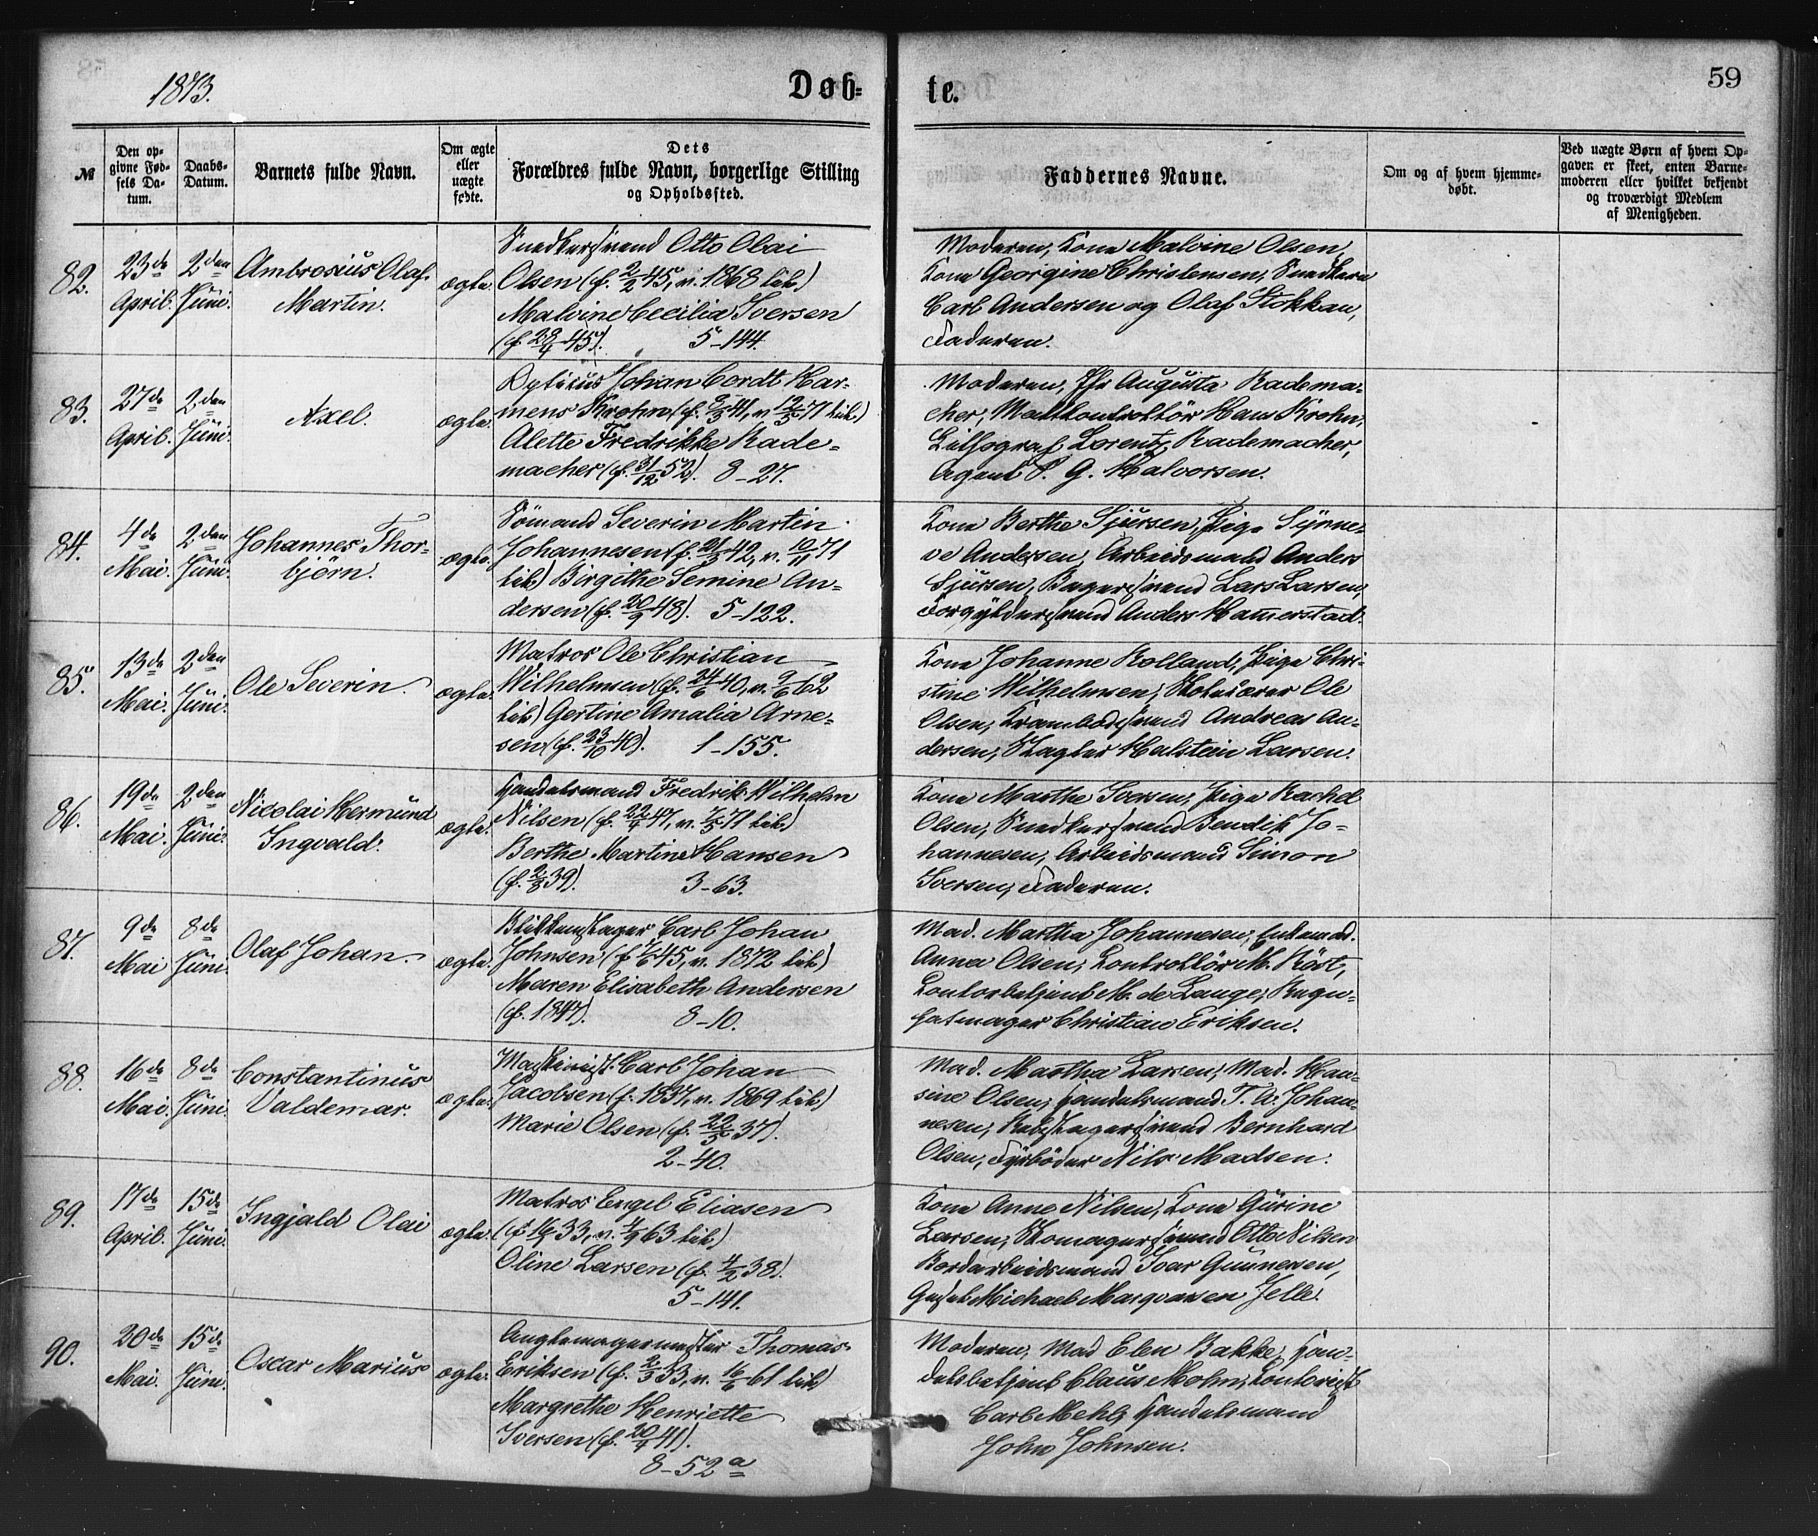 1873.
Døb-
te.
59
№
Den op-
givne Fød-
sels Da-
tum.
Daabs-
Datum.
Barnets fulde Navn.
Om ægte
eller
uægte
fødte.
Dets
Forældres fulde Navn, borgerlige Stilling
og Opholdssted.
Faddernes Navne.
Om og af hvem hjemme-
døbt.
Ved uægte Børn af hvem Op-
gaven er skeet, enten Barne-
moderen eller hvilket bekjendt
og troværdigt Medlem
af Menigheden.
82.
23de
April.
2den
Juni.
Ambrosius Olaf
Martin.
ægte.
Snedkersvend Otto Olai
Olsen (f. 2/2 45, v. 1868 lik.)
Malvine Cecilia Iversen
(f. 28/4 45). 5-144.
Moderen, Kone Malvine Olsen,
Kone Georgine Christensen, Snedkere
Carl Andersen og Olaf Stokkan,
Faderen.
83.
27de
April.
2den
Juni.
Axel.
ægte.
Opticus Johan Cordt Har-
mens Krohn (f. 8/3 41, v. 12/5 71 lik.)
Alette Fredrikke Rade-
macher (f. 31/12 52). 8-27.
Moderen, Jfr Augusta Radema-
cher, Maalkontrollör Hans Krohn,
Lithograf Lorentz Rademacher,
Agent P. G. Halvorsen.
84.
4de
Mai.
2den
Juni.
Johannes Thor-
björn.
ægte.
Sömand Severin Martin
Johannesen (f. 21/3 42, v. 10/11 71
lik.) Birgithe Semine An-
dersen (f. 20/9 48). 5-122.
Kone Berthe Sjursen, Pige Synne-
ve Andersen, Arbeidsmand Anders
Sjursen, Bagersvend Lars Larsen,
Forgyldersvend Anders Hamerstad.
85.
13de
Mai.
2den
Juni.
Ole Severin.
ægte.
Matros Ole Christian
Wilhelmsen (f. 24/6 40, v. 9/6 62
lik.) Gertine Amalia Arne-
sen (f. 23/6 40). 1-155.
Kone Johanne Rolland, Pige Chri-
stine Wilhelmsen, Skolelærer Ole
Olsen, Krambodsvend Andreas An-
dersen, Slagter Halstein Larsen.
86.
19de
Mai.
2den
Juni.
Nicolai Hermund
Ingvald.
ægte.
Handelsmand Fredrik Wilhelm
Nilsen (f. 22/4 47, v. 7/5 71 lik.)
Berthe Martine Hansen
(f. 2/8 39). 3-63.
Kone Marthe Iversen, Pige Rachel
Olsen, Snedkersvend Bendik Jo-
hannesen, Arbeidsmand Simon
Iversen, Faderen.
87.
9de
Mai
8de
Juni.
Olaf Johan.
ægte.
Blikkenslager Carl Johan
Johnsen (f. 7/6 45, v. 1872 lik.)
Maren Elisabeth Andersen
(f. 1847). 8-10.
Mad. Martha Johannesen, Enkemad.
Anna Olsen, Kontrollör M. Röst,
Kontorbetjent M. de Lange,
Christian Eriksen.
88.
16de
Mai.
8de
Juni.
Constantinus
Valdemar.
ægte.
Maskinist Carl Johan
Jacobsen (f. 1837, v. 1869 lik.)
Marie Olsen (f. 22/5 37).
2-40.
Mad. Martha Larsen, Mad. Han-
sine Olsen, Handelsmand T. A. Johan-
nesen, Rebslagersvend Bernhard
Olsen, Fyrböder Nils Madsen.
89.
17de
April.
15de
Juni.
Ingjald Olai
ægte.
Matros Engel Eliasen
(f. 16/5 33, v. 4/9 63 lik.)
Oline Larsen (f. 4/2 38).
5-141.
Kone Anne Nilsen, Kone Gurine
Larsen, Skomagersvend Otto Nilsen
Bordarbeidsmand Ivar Gunnersen,
Michael Marqvarsen Jelle.
90.
20de
Mai.
15de
Juni.
Oscar Marius
ægte.
Thomas
Eriksen (f. 2/3 33, v. 16/6 61 lik.)
Margrethe Henriette
Iversen (f. 20/4 41).
8-52a
Moderen, Mad Elen Bakke, Han-
delsbetjent Claus Mohn, Kontorist
Carl Mehl, Handelsmand
John Johnsen.